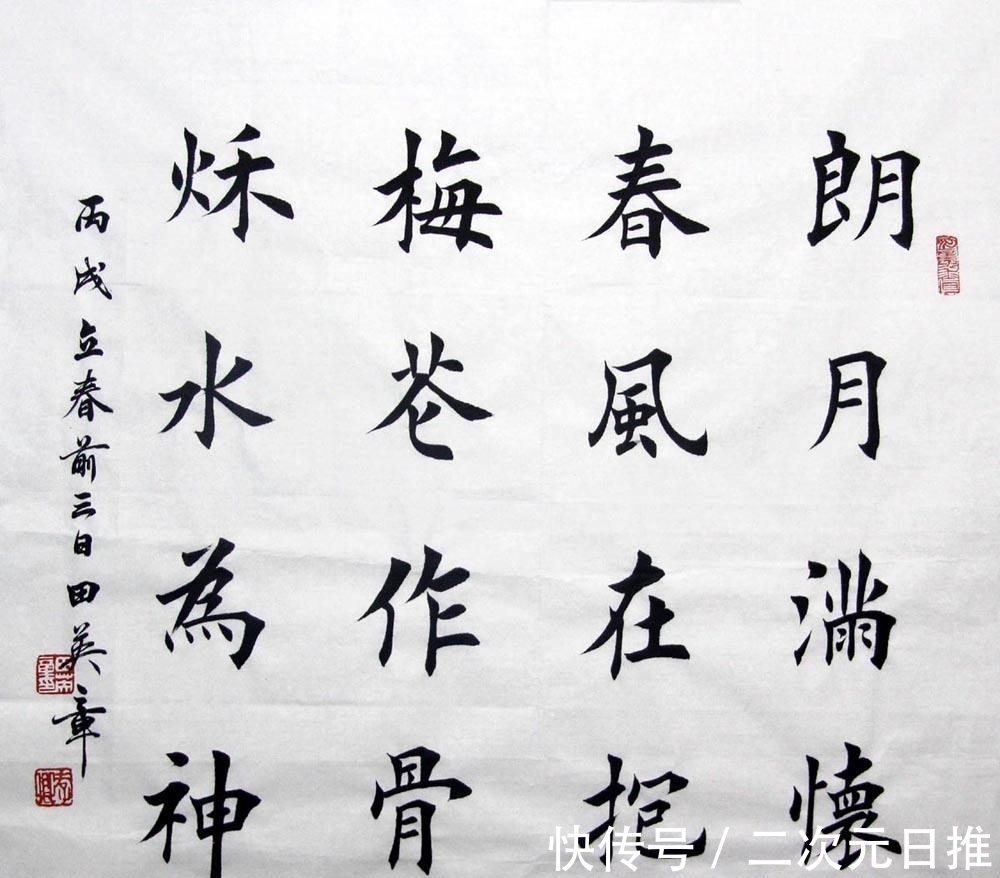 朗月满懷
春風在抱
梅花作骨
秌水為神
丙戌立春前三日田英章
快传号/二次元日推